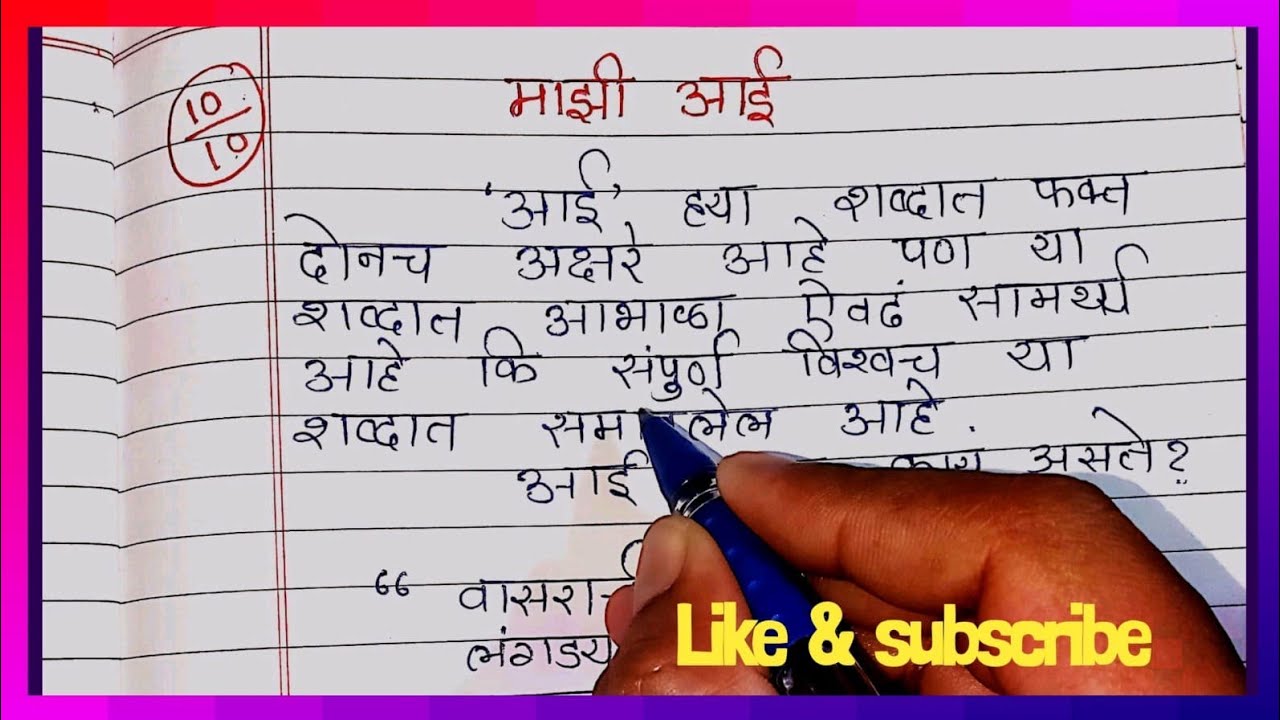 10
10
माझी आई
'आई' ह्या शब्दात फक्त
दोनच अक्षरे आहे पण या
शब्दात आभाळा ऐवढं सामर्थ्य
आहे कि संपुर्ण विश्वच या
शब्दात आहे.
आई असते?
“ वासरा
लंगडय
Like & subscribe